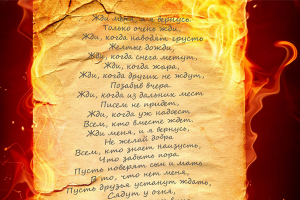 Жди меня, и я вернусь.
Только очень жди,
Жди, когда наводят грусть
Желтые дожди,
Жди, когда снега метут,
Жди, когда жара,
Жди, когда других не ждут,
Позабыв вчера.
Жди, когда из дальних мест
Писем не придет,
Жди, когда уж надоест
Всем, кто вместе ждет.
Жди меня, и я вернусь,
Не желай добра
Всем, кто знает наизусть,
Что забыть пора.
Пусть поверят сын и мать
В то, что нет меня,
Пусть друзья устанут ждать,
Сядут у огня,